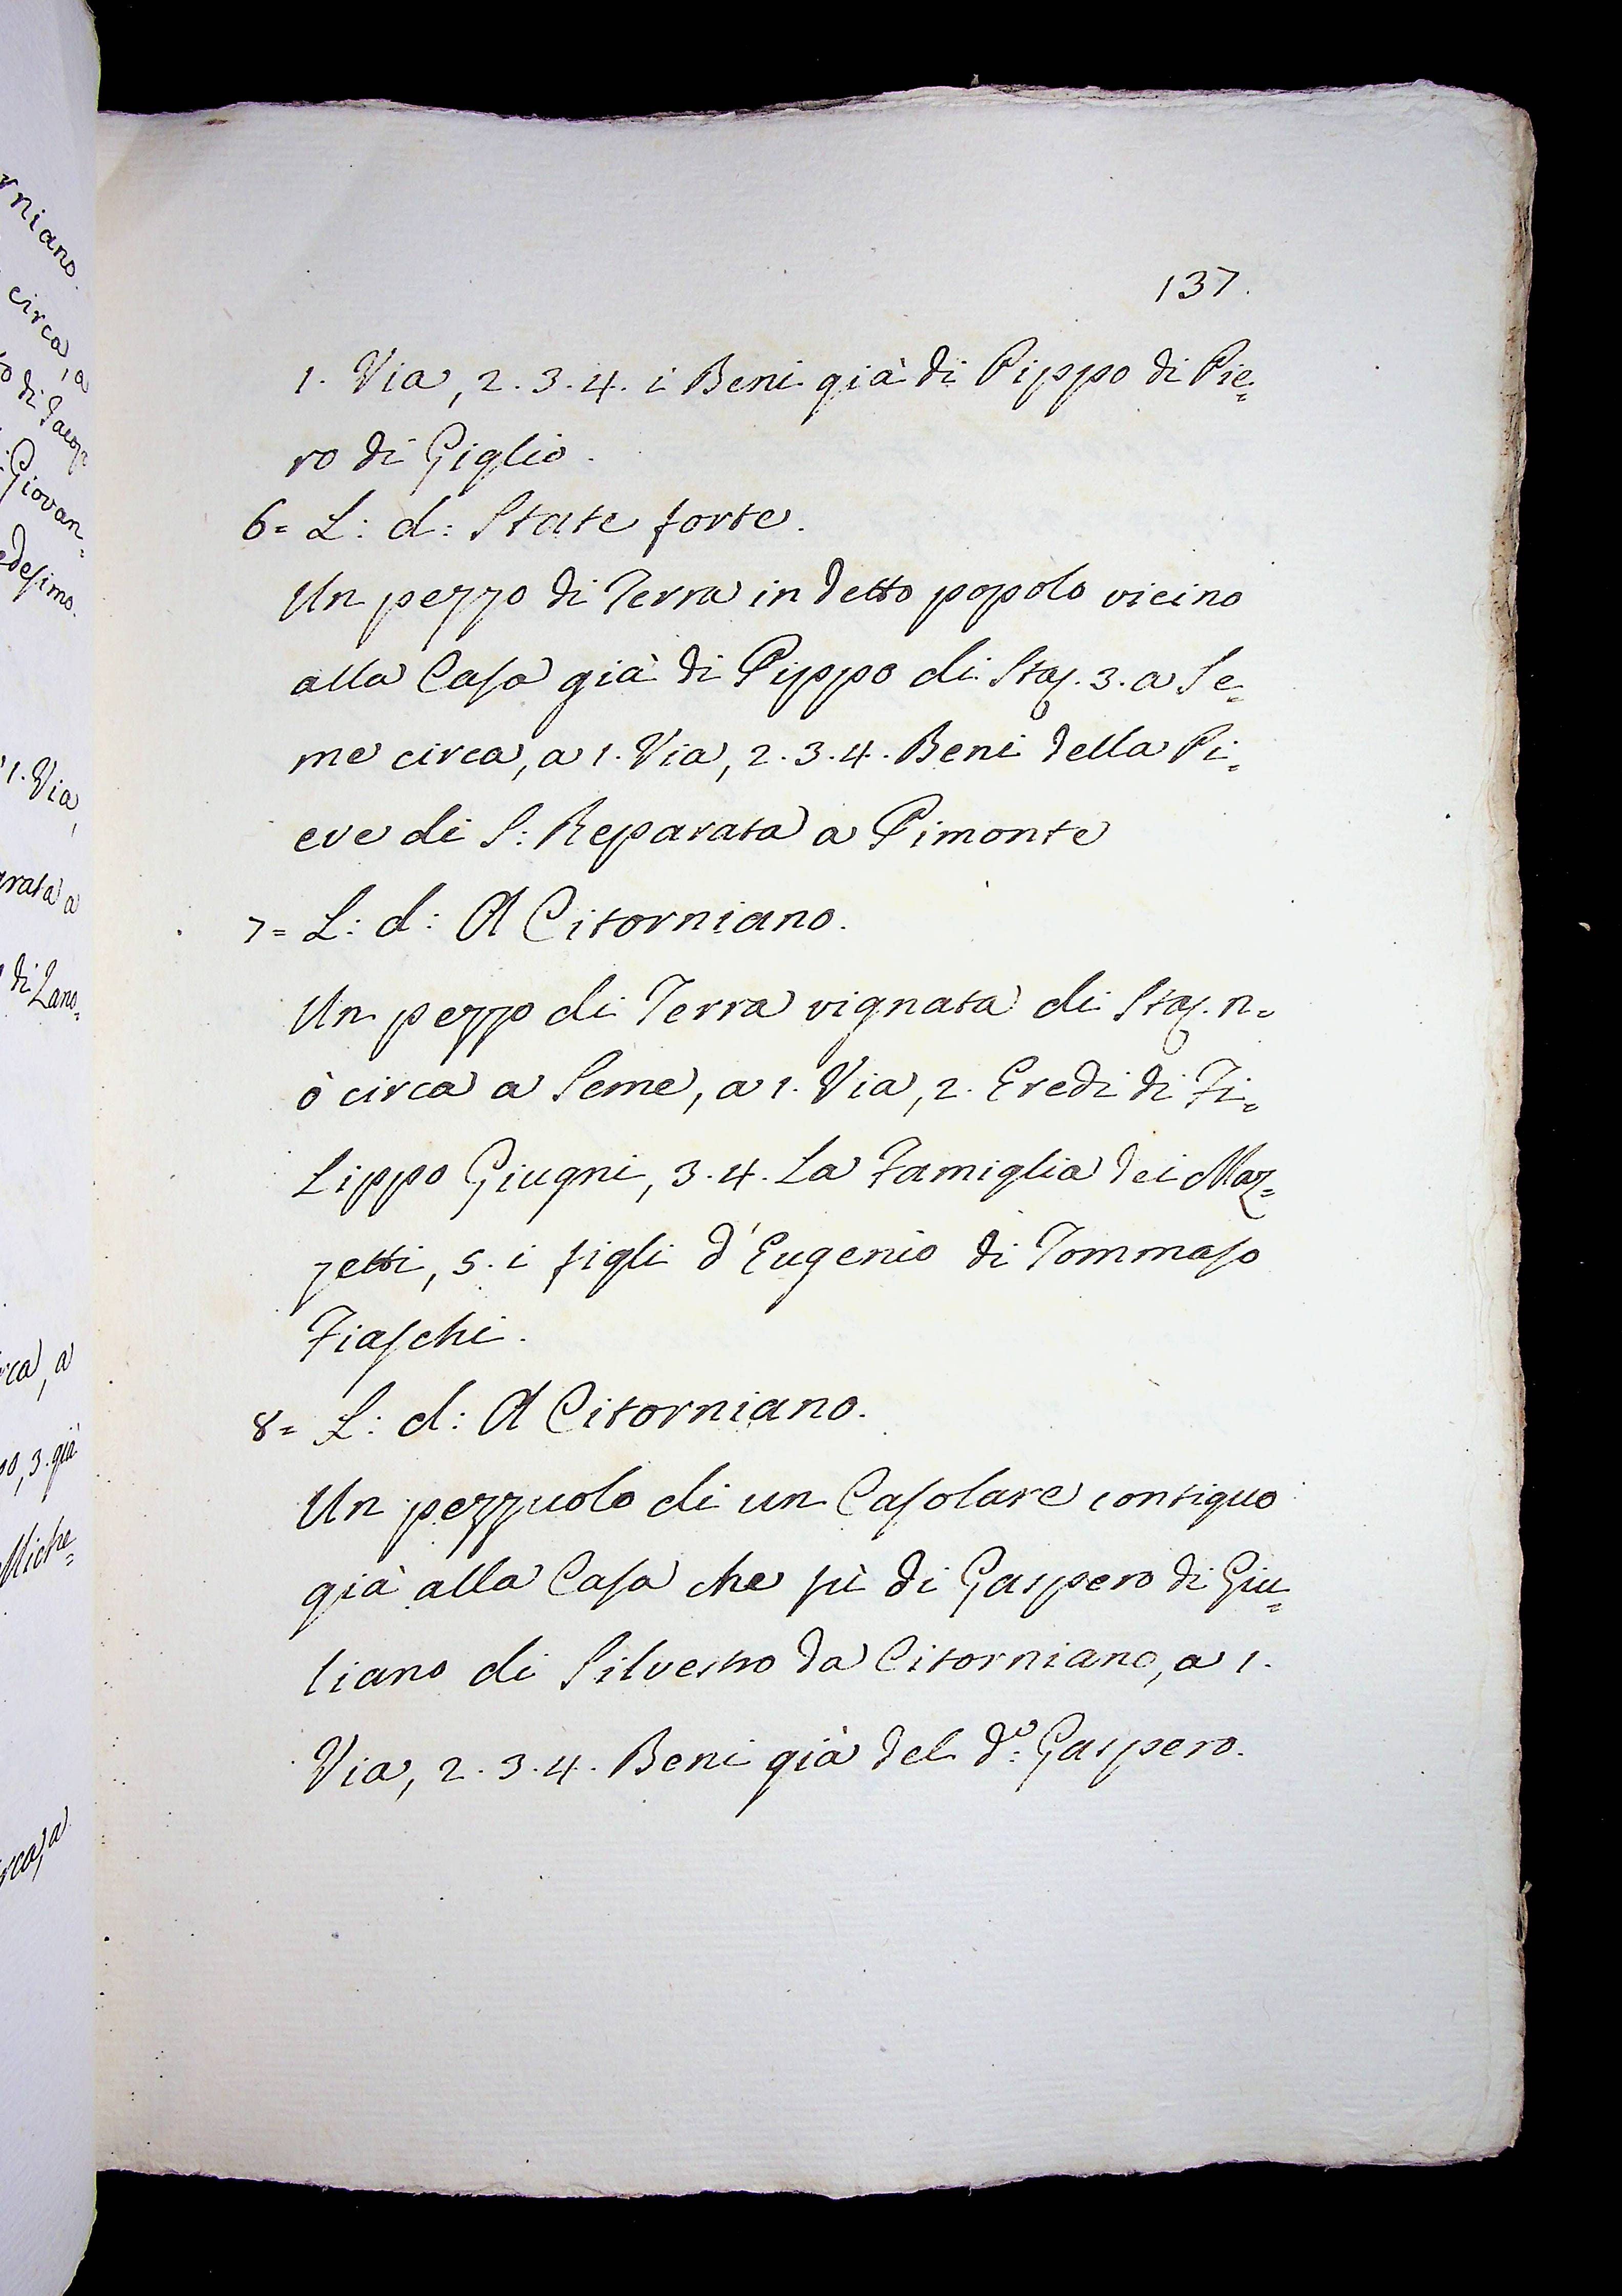 137.
1. Via, 2. 3. 4. i Beni già di Pippo di Pie=
ro di Giglio.
6= L: d: State forte.
Un pezzo di Terra in detto popolo vicino
alla Casa già di Pippo di Staj. 3. a Se=
me circa, a 1. Via, 2. 3. 4. Beni della Pi=
eve di S: Reparata a Pimonte
7= L: d: A Citorniano.
Un pezzo di Terra vignata di Staj. n=
ò circa a Seme, a 1. Via, 2. Eredi di Fi=
lippo Giugni, 3. 4. La Famiglia dei Maz=
zetti, 5. i figli d'Eugenio di Tommaso
Fiaschi.
8= L: d: A Citorniano.
Un pezzuolo di un Casolare contiguo
già alla Casa che fù di Gaspero di Giu=
liano di Silvestro da Citorniano, a 1.
Via, 2. 3. 4. Beni già del d.º: Gaspero.
rniano.
circa, a
di Jacop
Giovan=
edesimo.
1. Via,
arata a
di Lano=
rca, a
po, 3. già
Miche=
irca, a